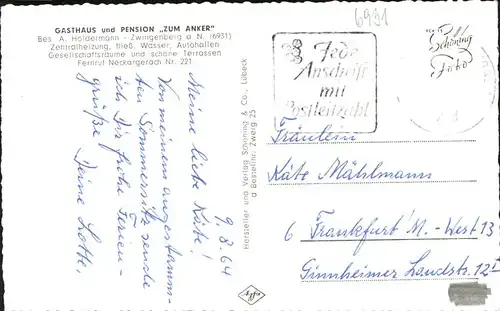 GASTHAUS und PENSION „ZUM ANKER"
Bes. A. Holdermann - Zwingenberg a. N. (6931)
Zentralheizung, fließ. Wasser, Autohallen
Gesellschaftsräume und schöne Terrassen
Fernruf Neckargerach Nr. 221
9. 8. 64
Meine liebe Käte!
Von meinem angestamm-
ten Sommersitz sende
ich Dir frohe Ferien-
grüße. Deine Lotte.
Hersteller und Verlag Schöning & Co., Lübeck
a Bestellnr. Zwerg 25
6931
Jede
Anschrift
mit
Postleitzahl
Schöning
Foto
Fräulein
Käte Mählmann
6 Frankfurt/M.-West 13
Ginnheimer Landstr. 12 I